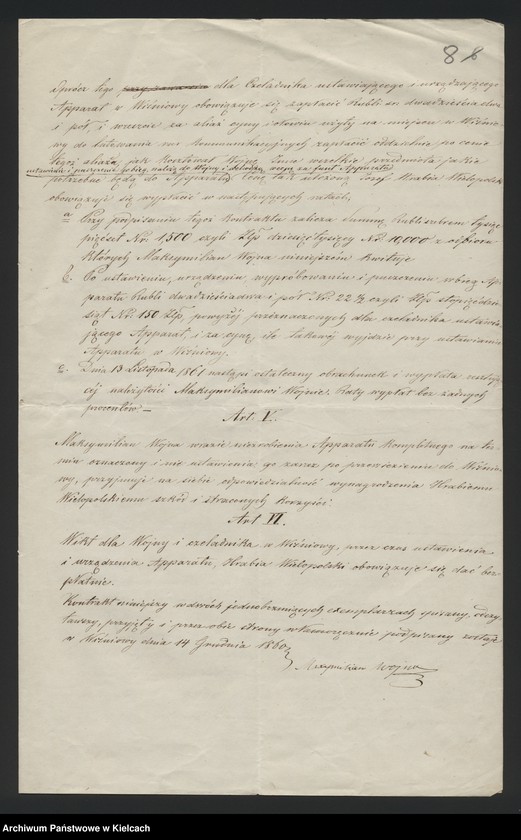 8
Oprócz tego przy zawarciu dla Czeladnika ustawiającego i urządzającego
Apparat w Wiśniowy obowiązuje się zapłacić Rubli sr. dwadzieścia dwa
i pół, i wreszcie za aliaż cyny i ołowiu użyty na miejscu w Wiśnio-
wy do latowania rur kommunikacyjnych zapłacić oddzielnie po cenie
tegoż aliażu, jak kosztował Wojnę. Inne wszelkie przedmiota jakie
ustawienia i puszczenia w bieg, należą do Wojny i składają
potrzebne będą do Apparatu. Cenę tak ułożoną Józef Hrabia Wielopolski
obowiązuje się wypłacić w następujących ratach,
a Przy podpisaniu tegoż Kontraktu zalicza summę Rubli srebrem tysiąc
pięćset Nr. 1,500 czyli Złp. dziesięć tysięcy No 10,000 z odbioru
których Maksymilian Wojna niniejszém kwituje.
b. Po ustawieniu, urządzeniu, wypróbowaniu i puszczeniu w bieg Ap-
paratu Rubli dwadzieścia dwa i pół Nr. 22 ½ czyli Złp. sto pięćdzie-
siąt No. 150 Złp, powyżéj przeznaczonych dla czeladnika ustawia-
jącego Apparat, i za cynę ile takowéj wyjdzie przy ustawianiu
Apparatu w Wiśniowy.
c. Dnia 13 Listopada 1861 nastąpi ostateczny obrachunek i wypłata reszty-
céj należytości Maksymilianowi Wojnie. Raty wypłat bez żadnych
procentów —
Art. V.
Maksymilian Wojna w razie niezrobienia Apparatu kompletnego na ter-
min oznaczony i nie ustawienia go zaraz po przewiezieniu do Wiśnio-
wy, przyjmuje na siebie odpowiedzialność wynagrodzenia Hrabiemu
Wielopolskiemu szkód i straconych korzyści.
Art VI.
Wikt dla Wojny i czeladnika w Wiśniowy, przez czas ustawienia
i urządzenia Apparatu, Hrabia Wielopolski obowiązuje się dać bez-
płatnie.
Kontrakt niniejszy w dwóch jednobrzmiących exemplarzach spisany, odczy-
tawszy, przyjęty i przez obie strony własnoręcznie podpisany został
w Wiśniowy dnia 14 Grudnia 1860 r.
Maxymilian Wojna
Archiwum Państwowe w Kielcach